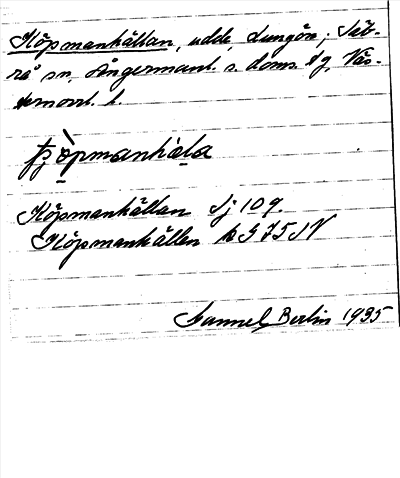 Köpmanhällan, udde, Lungön, Säb-
rå sn, Ångermanl. s. doms. dg, Väs-
ternorrl. l.
Köpmanhällan Sj 109.
Köpmanhällen k G 75 SV
Samuel Berlin 1935